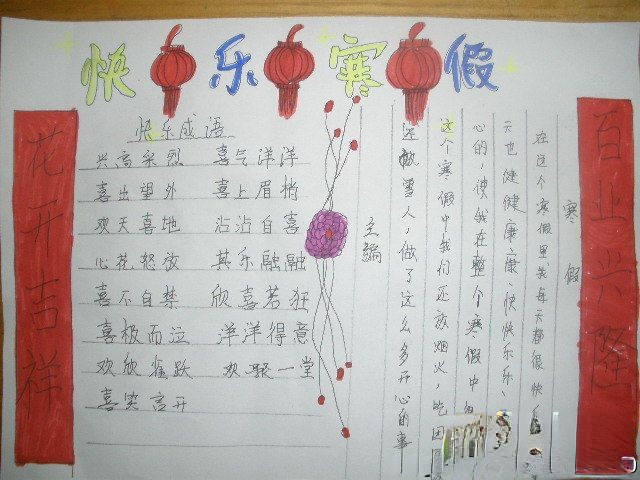 快乐寒假
花开吉祥
百业兴隆
快乐成语
兴高采烈 喜气洋洋
喜出望外 喜上眉梢
欢天喜地 沾沾自喜
心花怒放 其乐融融
喜不自禁 欣喜若狂
喜极而泣 洋洋得意
欢欣雀跃 欢聚一堂
喜笑言开
寒假
在这个寒假里我每天都很快
天也健健康康、快快乐乐、
心的,使我在整个寒假中
这个寒假中我们还放烟火,吃团
还 雪人,做了这么多开心的事
主编